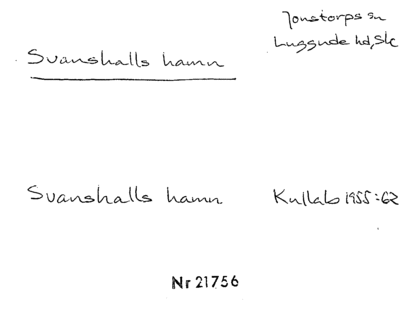 Jonstorps sn
Svanshalls hamn
Luggude hd, Sk
Svanshalls hamn Kullab 1955:62
Nr 21756